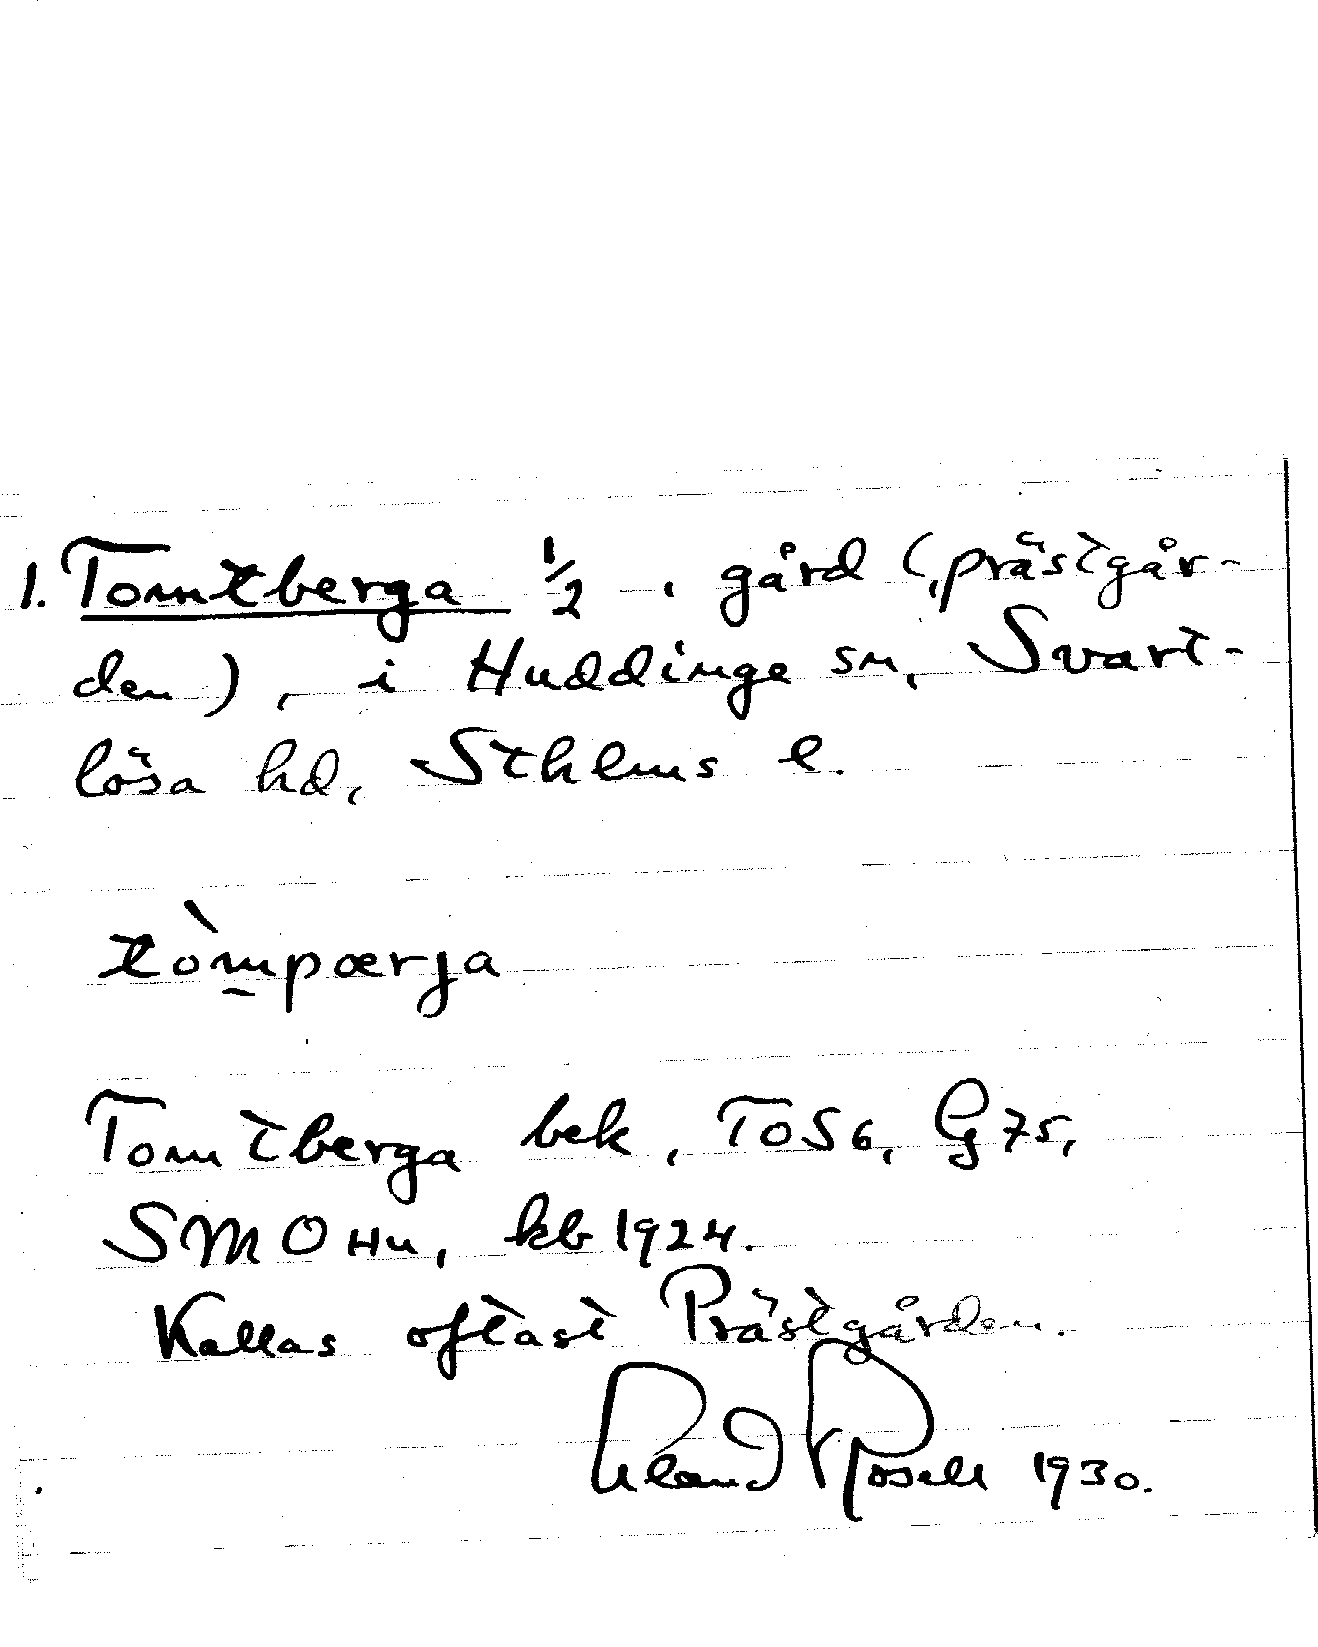 1. Tomtberga ½, gård (prästgår-
den), i Huddinge sn, Svart-
lösa hd, Sthlms l.
tòmpærja
Tomtberga bek, TOS6, G75,
SMOHu, kb 1924.
Kallas oftast Prästgården.
1930.